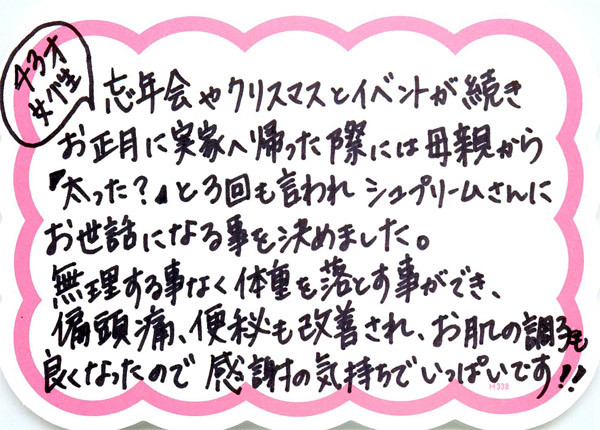 43才
女性
忘年会やクリスマスとイベントが続き
お正月に実家へ帰った際には母親から
『太った?』と3回も言われ シュプリームさんに
お世話になる事を決めました。
無理する事なく体重を落とす事ができ、
偏頭痛、便秘も改善され、お肌の調子も
良くなったので 感謝の気持ちでいっぱいです!!
H338